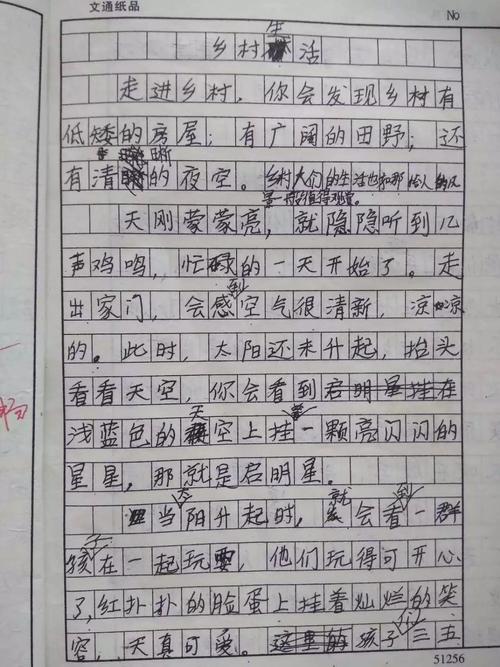 文通纸品
No
乡村生活
走进乡村，你会发现乡村有
低矮的房屋；有广阔的田野；还
有清晰的夜空。乡村人们的生活也和那
一般值得观赏。
天刚蒙蒙亮，就隐隐听到几
声鸡鸣，忙碌的一天开始了。走
出家门，会感到空气很清新，凉凉
的。此时，太阳还未升起，抬头
看看天空，你会看到启明星挂在
浅蓝色的天空上挂着一颗亮闪闪的
星星，那就是启明星。
当太阳升起时，就会看到一群
孩子在一起玩耍，他们玩得可开心
了，红扑扑的脸蛋上挂着灿烂的笑
容，天真可爱。这里的孩子三五
51256